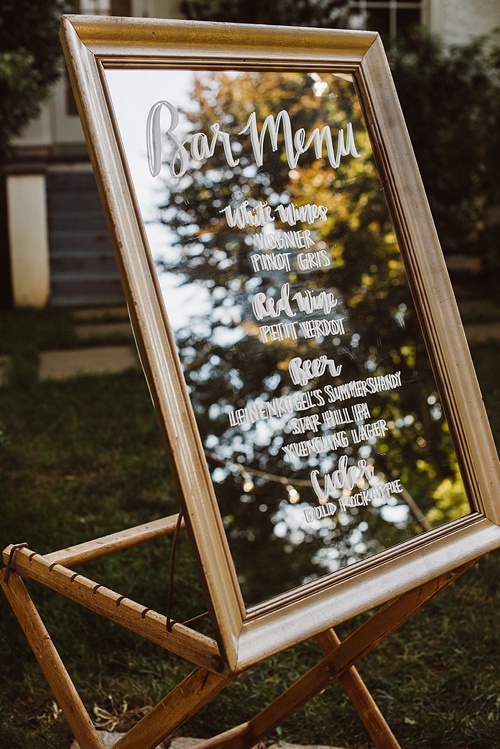 Bar Menu
White Wines
VIOGNIER
PINOT GRIS
Red Wine
PETIT VERDOT
Beer
LEINENKUGEL'S SUMMERSHANDY
STAR HILL IPA
YUENGLING LAGER
Cider
BOLD ROCK APPLE